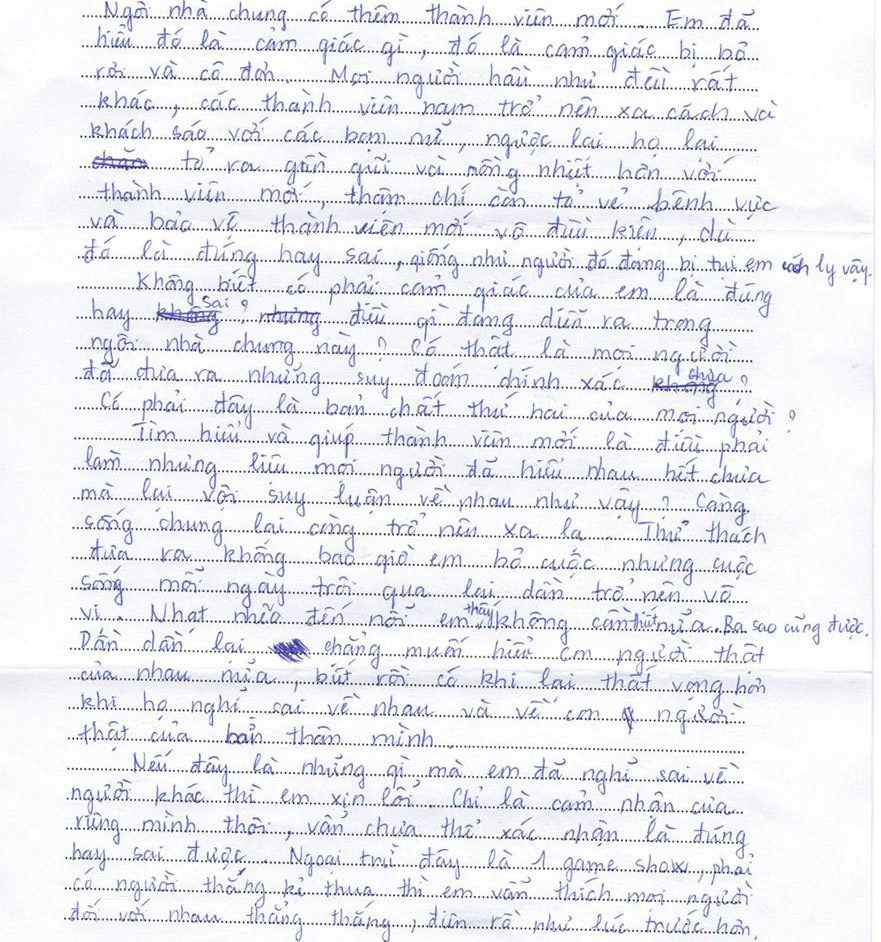 Ngôi nhà chung có thêm thành viên mới. Em đã
hiểu đó là cảm giác gì, đó là cảm giác bị bỏ
rơi và cô đơn. Mọi người hầu như đều rất
khác, các thành viên nam trở nên xa cách và
khách sáo với các bạn nữ, ngược lại họ lại
chăn tỏ ra gần gũi và nồng nhiệt hơn với
thành viên mới, thậm chí còn tỏ vẻ bênh vực
và bảo vệ thành viên mới vô điều kiện, dù
đó là đúng hay sai, giống như người đó đang bị tụi em cách ly vậy.
Không biết có phải cảm giác của em là đúng
hay không sai? nhưng điều gì đang diễn ra trong
ngôi nhà chung này? Có thật là mọi người
đã đưa ra những suy đoán chính xác không chưa?
Có phải đây là bản chất thứ hai của mọi người?
Tìm hiểu và giúp thành viên mới là điều phải
làm nhưng liệu mọi người đã hiểu nhau hết chưa
mà lại vội suy luận về nhau như vậy? Càng
sống chung lại càng trở nên xa lạ. Thử thách
đưa ra không bao giờ em bỏ cuộc nhưng cuộc
sống mỗi ngày trôi qua lại dần trở nên vô
vị. Nhạt nhẽo đến nỗi em thấy không cần thiết nữa. Ra sao cũng được.
Dần dần lại chẳng muốn hiểu con người thật
của nhau nữa, biết rồi có khi lại thất vọng hơn
khi họ nghĩ sai về nhau và về con người
thật của bản thân mình.
Nếu đây là những gì mà em đã nghĩ sai về
người khác thì em xin lỗi. Chỉ là cảm nhận của
riêng mình thôi, vẫn chưa thể xác nhận là đúng
hay sai được. Ngoại trừ đây là 1 game show, phải
có người thắng kẻ thua thì em vẫn thích mọi người
đối với nhau thẳng thắng, điên rồ như lúc trước hơn.